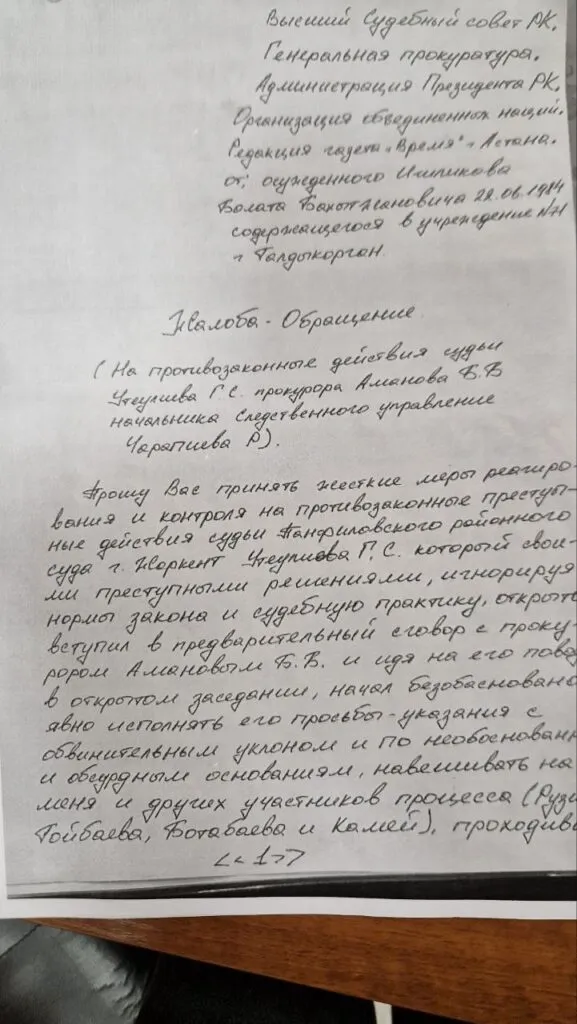 Высший Судебный совет РК.
Генеральная прокуратура.
Администрация Президента РК.
Организация объединенных наций.
Редакция газета "Время" г Астана.
от; осужденного
Болата 29.06.1984
содержащегося в учреждение №71
г Талдыкорган.
Жалоба - Обращение
(На противозаконные действия судьи
Утеулиева Г.С. прокурора Аманова Б.Б
начальника Следственного управление
Чарапиева Р).
Прошу Вас принять жесткие меры реагиро-
вания и контроля на противозаконные преступ-
ные действия судьи Панфиловского районного
суда г. Жаркент Утеулиева Г,С. который свои-
ми преступными решениями, игнорируя
нормы закона и судебную практику, открыто
вступил в предварительный сговор с проку-
рором Амановым Б.Б. и идя на его повод
в открытом заседании, начал безобасновано
явно исполнять его просьбы-указания с
обвинительным уклоном и по необоснован
и обсурдным основаниям, навешивать на
меня и других участников процесса (Рузи
Тойбаева, Ботабаева и Камей), проходив
<<1>>